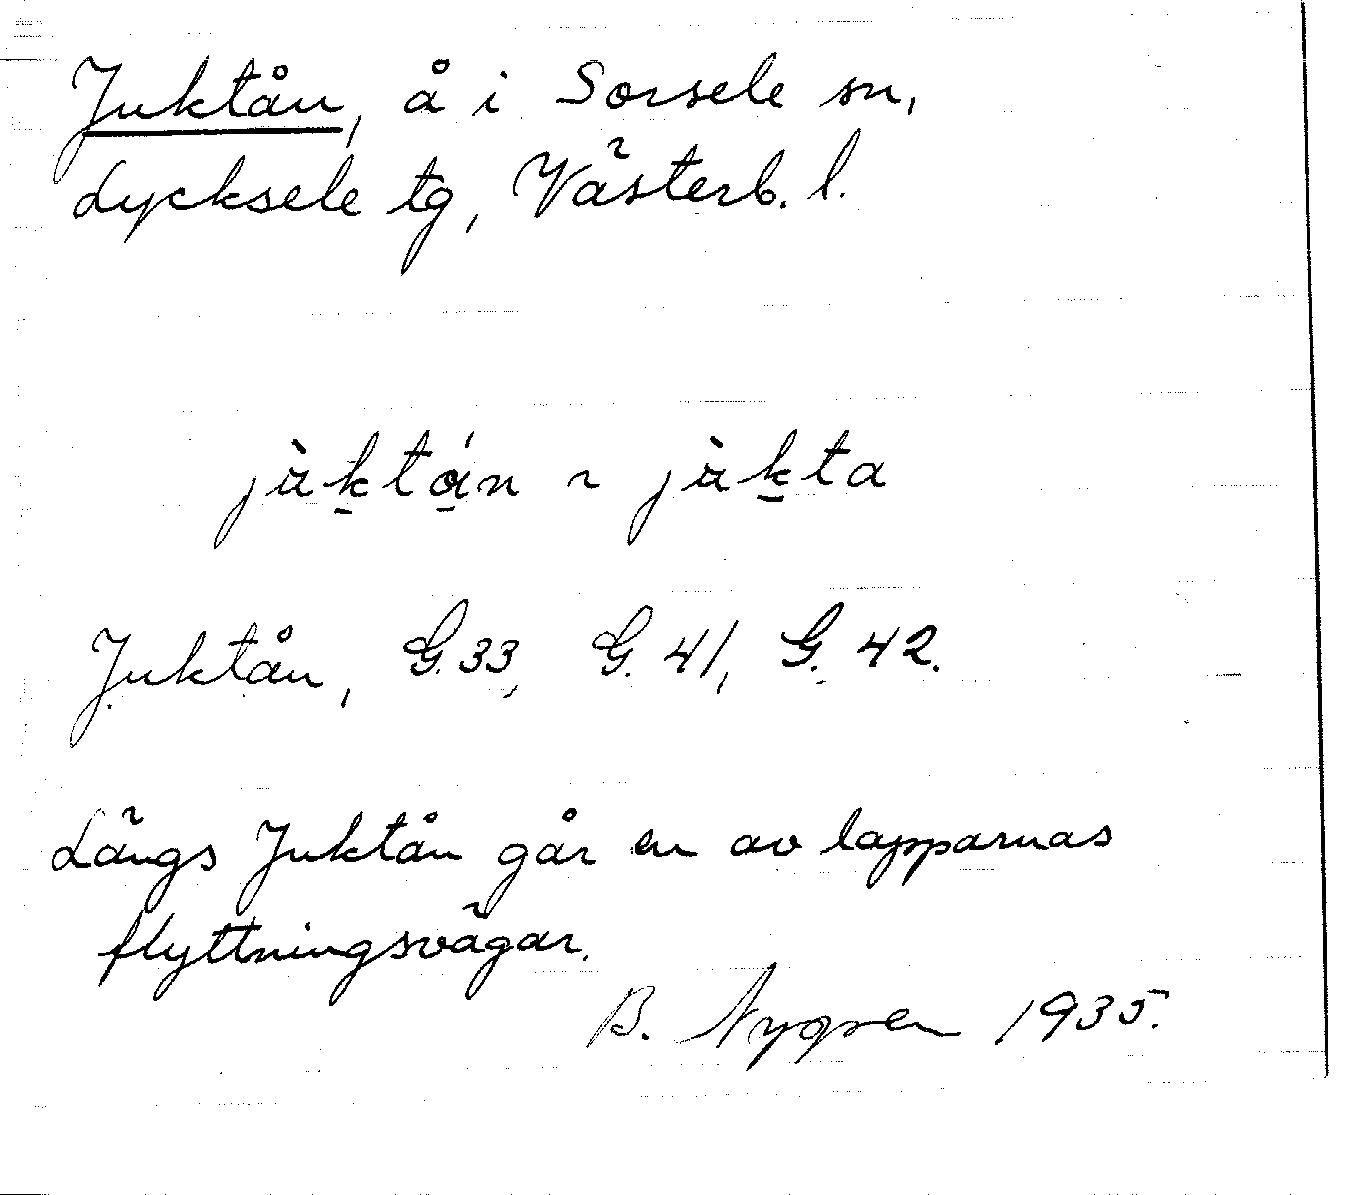 Juktån, å i Sorsele sn,
Lycksele tg, Västerb. l.
jùktån ~ jùkta
Juktån, G. 33, G. 41, G. 42.
Längs Juktån går en av lapparnas
flyttningsvägar.
B. Nygren 1935.